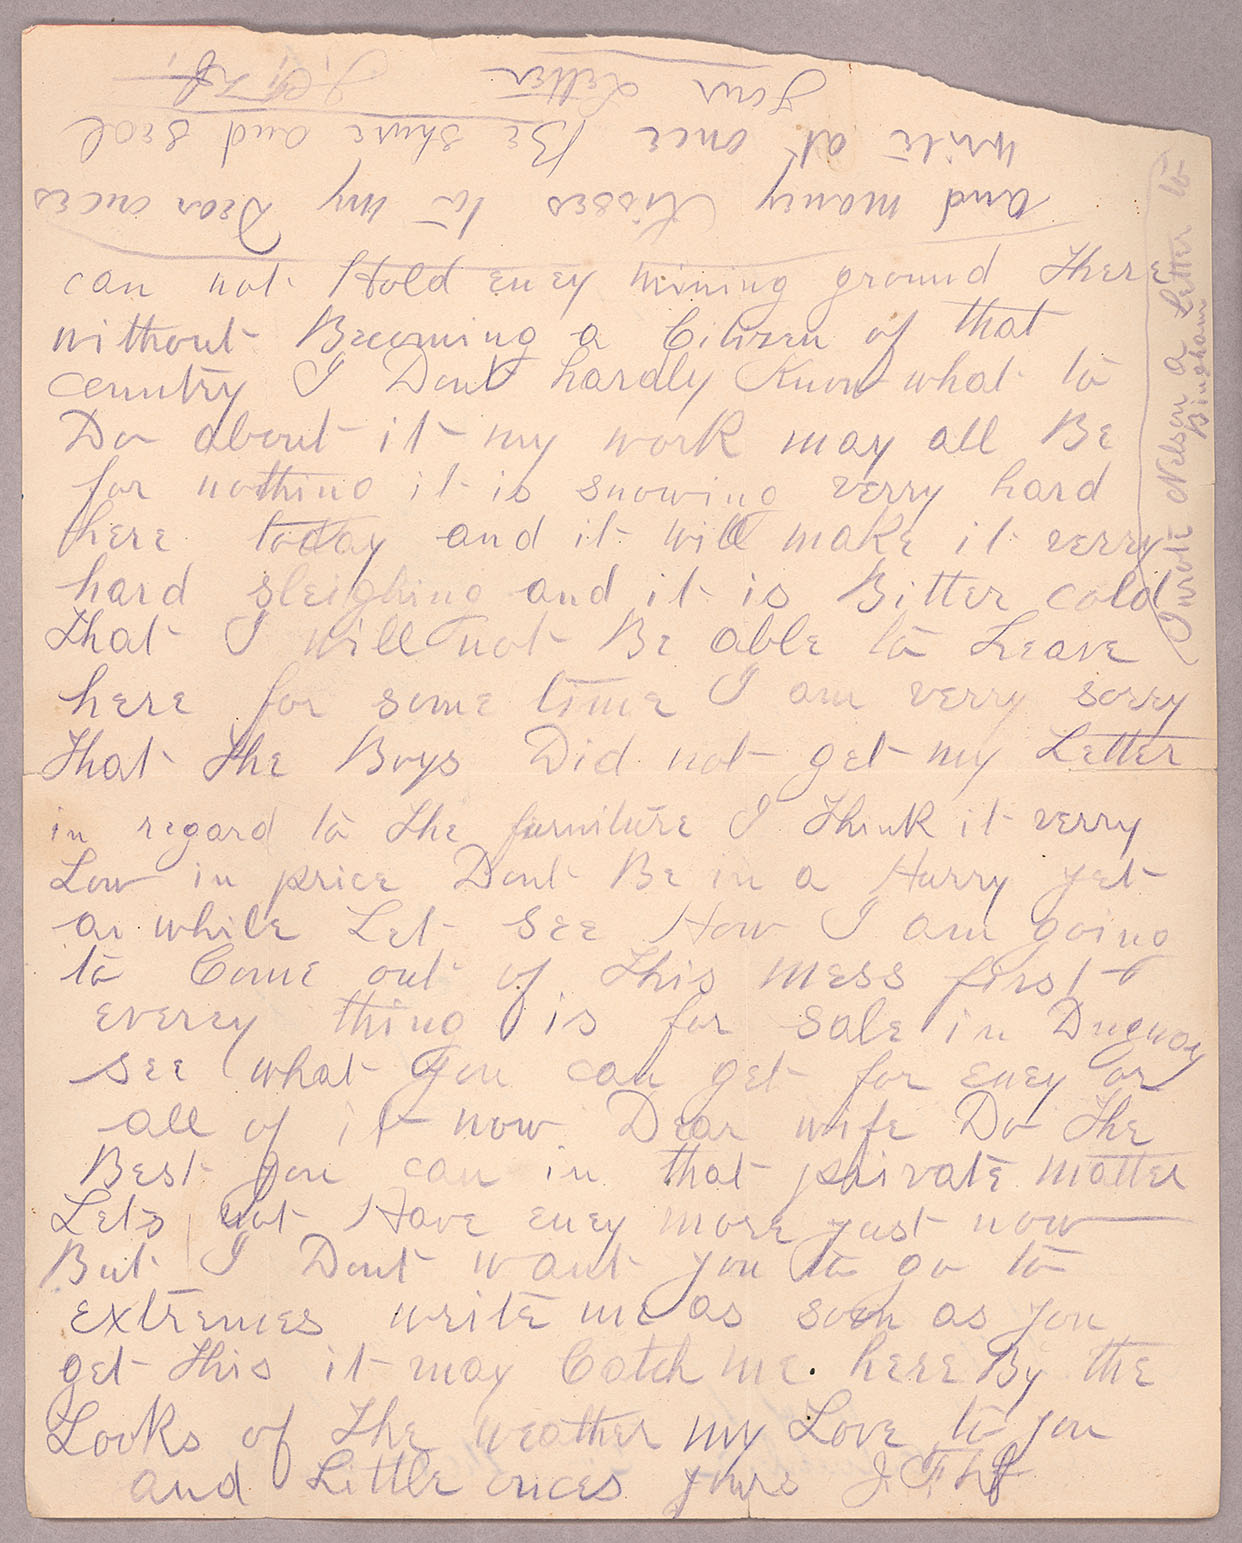 can not Hold eney mining ground There
without Becoming a Citizen of that
country I Dont hardly Know what to
Do about it my work may all Be
for nothing it is snowing verry hard
here today and it will make it verry
hard sleighing and it is Bitter cold
That I will not Be able to Leave
here for some time I am verry sorry
That The Boys Did not get my Letter
in regard to The furniture I Think it verry
Low in price Dont Be in a Hurry yet
an while Let see How I am going
to Come out of This mess first
everey thing is for sale in Dugway
see what you can get for eney or
all of it now Dear wife Do The
Best you can in that private matter
Lets not Have eney more just now
But I Dont want you to go to
extremes write me as soon as you
get This it may Catch me here By the
Looks of The weather my Love to you
and Little onces yours J.F.
and maney Kisses to my Dear onces
write at once Be shure and seal
your Letter
I wrote Nelson a Letter to
Bingham